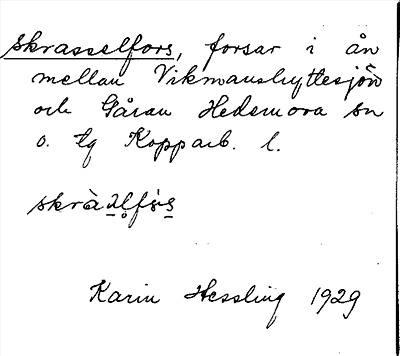 Skrasselfors, forsar i ån
mellan Vikmanshyttesjön
och Gåran Hedemora sn
o. tg Kopparb. l.
Karin Hessling 1929